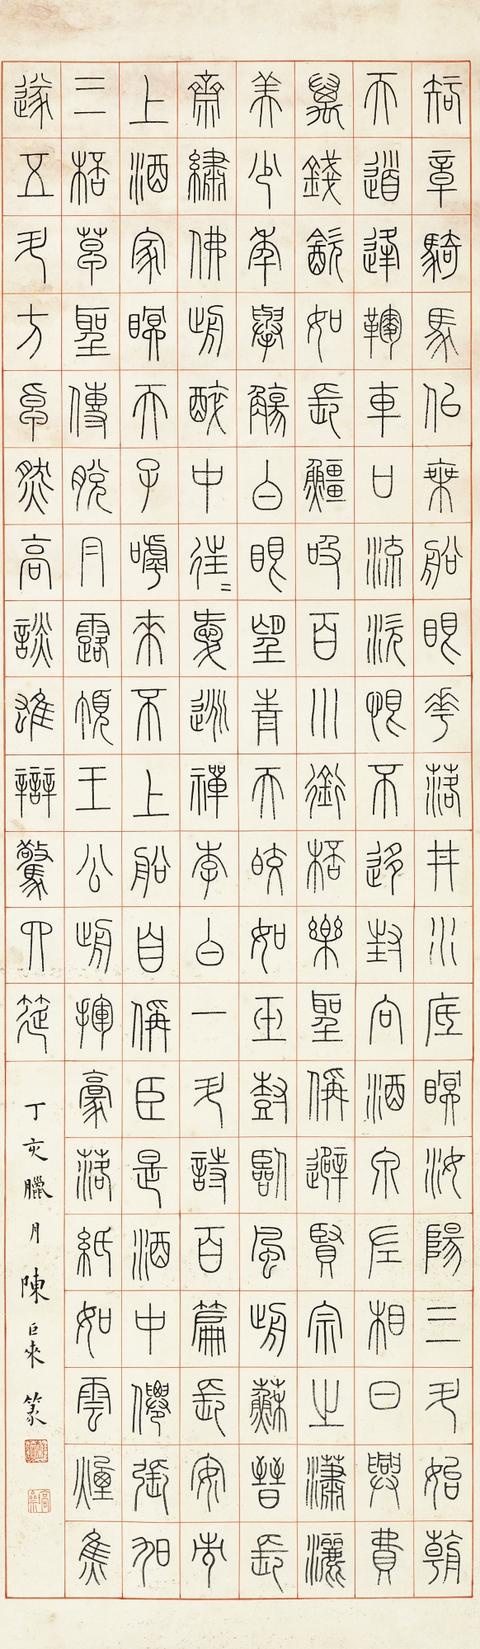 知章騎馬似乘船眼花落井水底眠汝陽三斗始朝
天道逢麴車口流涎恨不移封向酒泉左相日興費
萬錢飲如長鯨吸百川銜桮樂聖稱避賢宗之瀟灑
美少年舉觴白眼望青天皎如玉樹臨風前蘇晉長
齋繡佛前醉中往〻愛逃禪李白一斗詩百篇長安市
上酒家眠天子嘑來不上船自稱臣是酒中僊張旭
三桮草聖傳脫冃露頂王公前揮豪落紙如雲煙焦
遂五斗方卓然高談雄辯驚四筵
丁亥臘月陳巨來篆